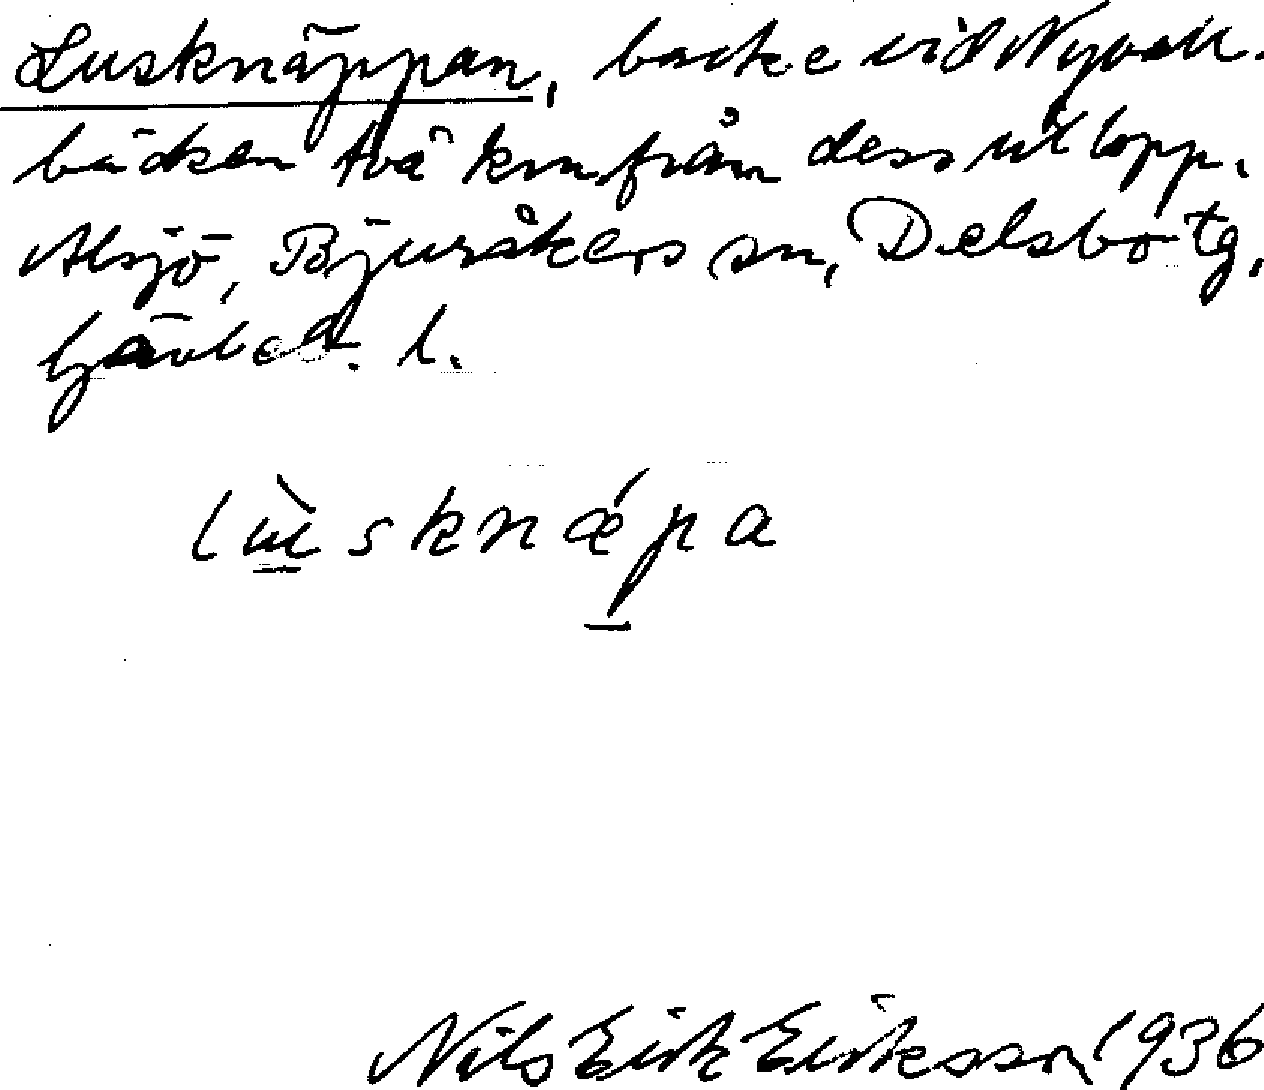 Lusknäppan, backe vid Nyvall-
bäcken två km från dess utlopp.
Alsjö, Bjuråkers sn, Delsbo tg,
Gävleb. l.
lùsknǽpa
Nils Erik Eriksson 1936